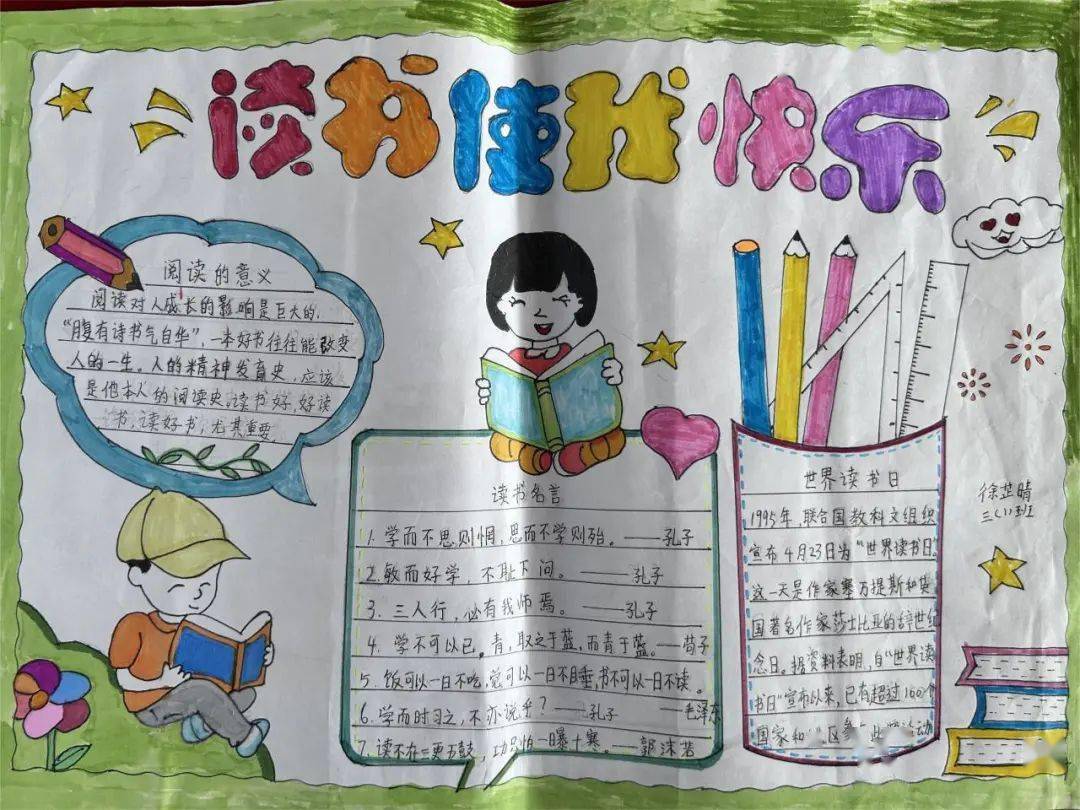 读书使我快乐
阅读的意义
阅读对人成长的影响是巨大的，
“腹有诗书气自华”，一本好书往往能改变
人的一生。人的精神发育史，应该
是他本人的阅读史，读书好，好读
书，读好书，尤其重要
读书名言
1. 学而不思则惘，思而不学则殆。——孔子
2. 敏而好学，不耻下问。——孔子
3. 三人行，必有我师焉。——孔子
4. 学不可以已。青，取之于蓝，而青于蓝。——荀子
5. 饭可以一日不吃，觉可以一日不睡，书不可以一日不读。
——毛泽东
6. 学而时习之，不亦说乎？——孔子
7. 读不在三更五鼓，功只怕一暴十寒。——郭沫若
世界读书日
1995年，联合国教科文组织
宣布4月23日为“世界读书日”。
这一天是作家塞万提斯和英
国著名作家莎士比亚的辞世纪
念日。据资料表明，自“世界读
书日”宣布以来，已有超过100个
国家和区参此活动
徐芷晴
三(1)班